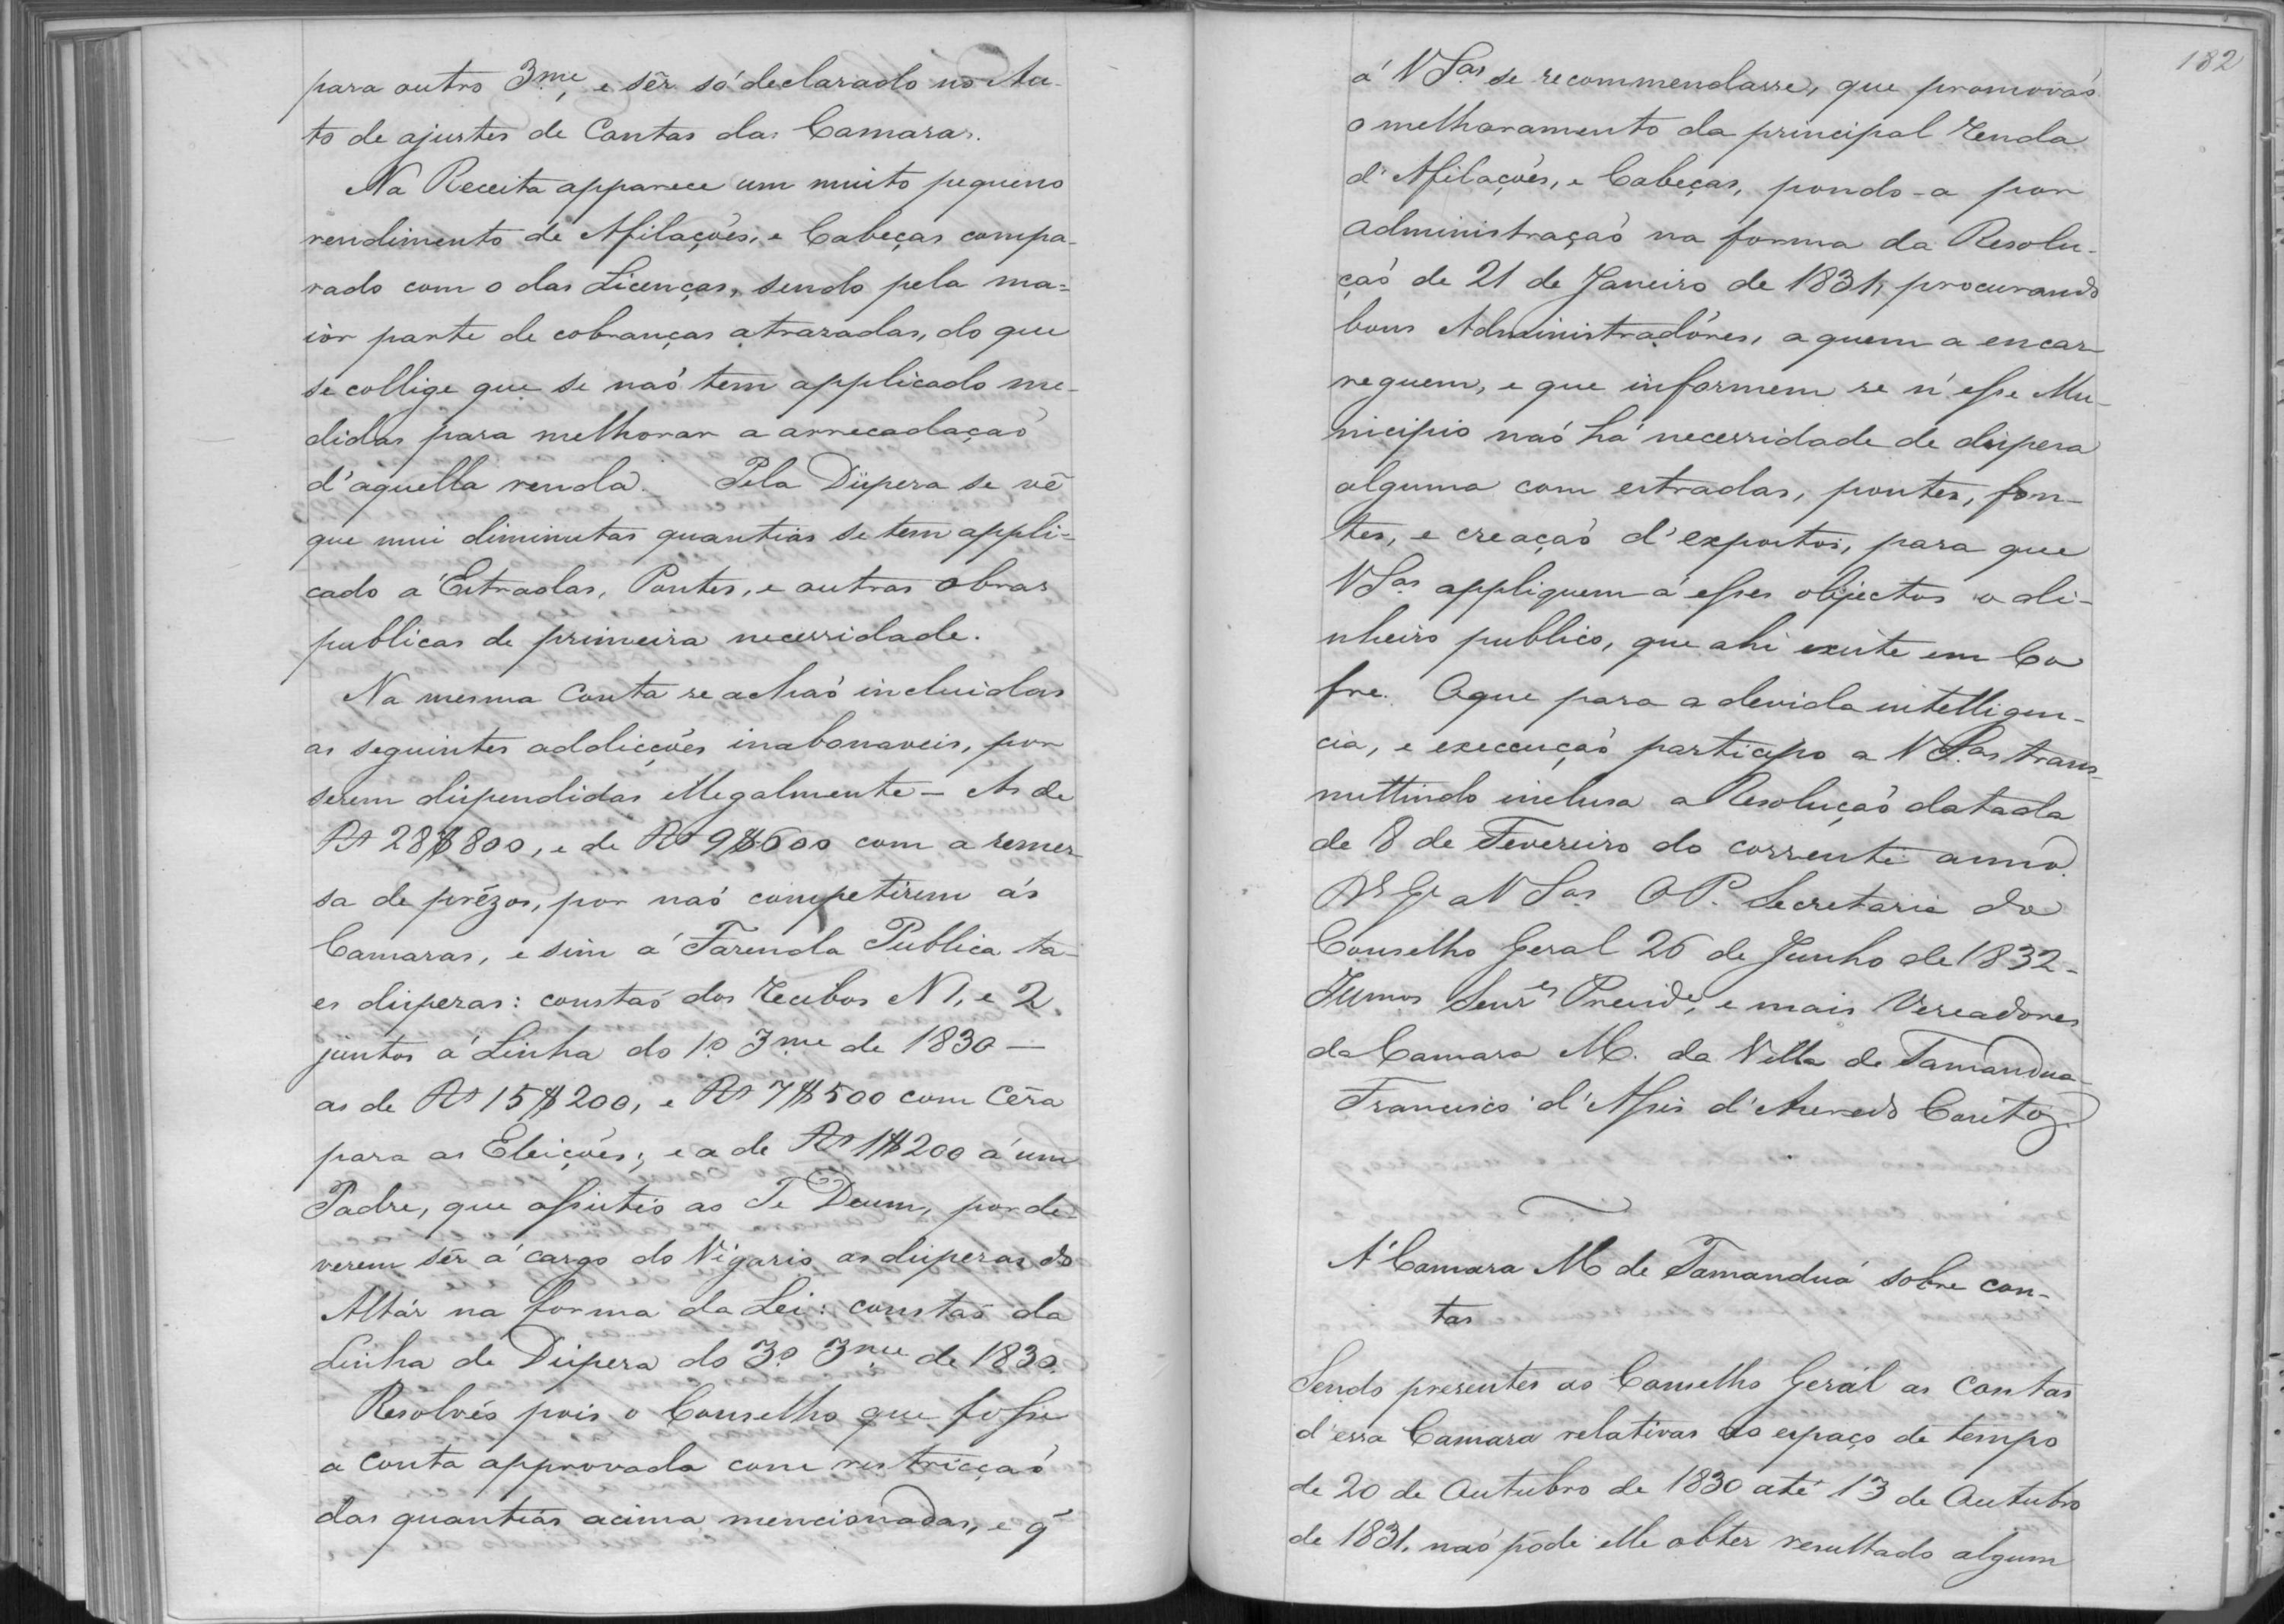 para outro 3.me, e sêr só declarado no Au-
to de ajustes de Contas das Camaras.
Na Receita apparece um muito pequeno
rendimento de Afilações, e Cabeças compa-
rado com o das Licenças, sendo pela ma=
iòr parte de cobranças atrazadas, do que
se collige que se naõ tem applicado me-
didas para melhorar a arrecadaçaõ
d'aquella renda. _ Pela Dispeza se vê
que mui diminutas quantias se tem appli=
cado a Estradas, Pontes, e outras obras
publicas de primeira necessidade.
Na mesma Conta se achaõ incluidas
as seguintes addicções inabonaveis, por
serem dispendidas illegalmente _ As de
Rs 28$800, e de Rs 9$600 com a remes-
sa de prêzos, por naõ competirem ás
Camaras, e sim a' Fazenda Publica ta-
es dispezas: constaõ dos Recibos N 1, e 2
juntos a' Linha do 1.o 3.me de 1830 —
as de Rs 15$200, e Rs 7$500 com Cêra
para as Eleições; e a de Rs 1$200 á um
Padre, que assistio ao Te Deum, por de-
verem sêr a' cargo do Vigario as dispezas do
Altár na forma da Lei: constaõ da
Linha de Dispeza do 3.o 3.me de 1830.
Resolvêo pois o Conselho que fosse
a Conta approvada com restricçaõ
das quantias acima mencionadas, e q̃
182
á V S.as se recommendasse, que promovaõ
o melhoramento da principal Renda
d'Afilações, e Cabeças, pondo-a por
administraçaõ na forma da Resolu-
çaõ de 21 de Janeiro de 1831, procurando
bons Administradôres, a quem a encar-
reguem, e que informem se n'esse Mu-
nicipio naõ há necessidade de dispeza
alguma com estradas, pontes, fon-
tes, e creaçaõ d'expostos, para que
V S.as appliquem a' esses objectos o di-
nheiro publico, que ahi existe em Co
fre. Oque para a devida intelligen-
cia, e execuçaõ participo a V S.as trans-
mittindo inclusa a Resoluçaõ datada
de 8 de Fevereiro do corrente anno.
Ds Ge a V S.as O P. Secretaria do
Conselho Geral 26 de Junho de 1832 -
Illmos Senr.es Presid.e, e mais Vereadores
da Camara M. da Villa de Tamanduá -
Francisco d'Assis d'Azeredo Couto.
A' Camara M de Tamanduá sobre con-
tas
Sendo presentes ao Conselho Geral as Contas
d'essa Camara relativas ao espaço de tempo
de 20 de Outubro de 1830 até 13 de Outubro
de 1831, naõ pôde elle obter resultado algum